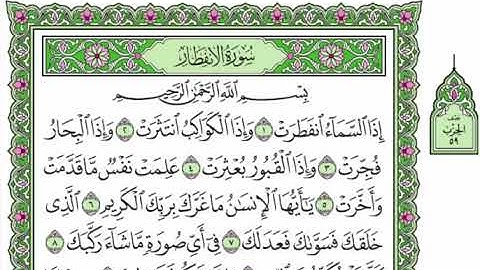 سُورَةُ الِانفِطَارِ
بِسْمِ اللَّهِ الرَّحْمَٰنِ الرَّحِيمِ
إِذَا السَّمَاءُ انفَطَرَتْ ١ وَإِذَا الْكَوَاكِبُ انتَثَرَتْ ٢ وَإِذَا الْبِحَارُ
فُجِّرَتْ ٣ وَإِذَا الْقُبُورُ بُعْثِرَتْ ٤ عَلِمَتْ نَفْسٌ مَّا قَدَّمَتْ
وَأَخَّرَتْ ٥ يَٰأَيُّهَا الْإِنسَٰنُ مَا غَرَّكَ بِرَبِّكَ الْكَرِيمِ ٦ الَّذِي
خَلَقَكَ فَسَوَّىٰكَ فَعَدَلَكَ ٧ فِي أَيِّ صُورَةٍ مَّا شَاءَ رَكَّبَكَ ٨
نصف
الحزب
٥٩